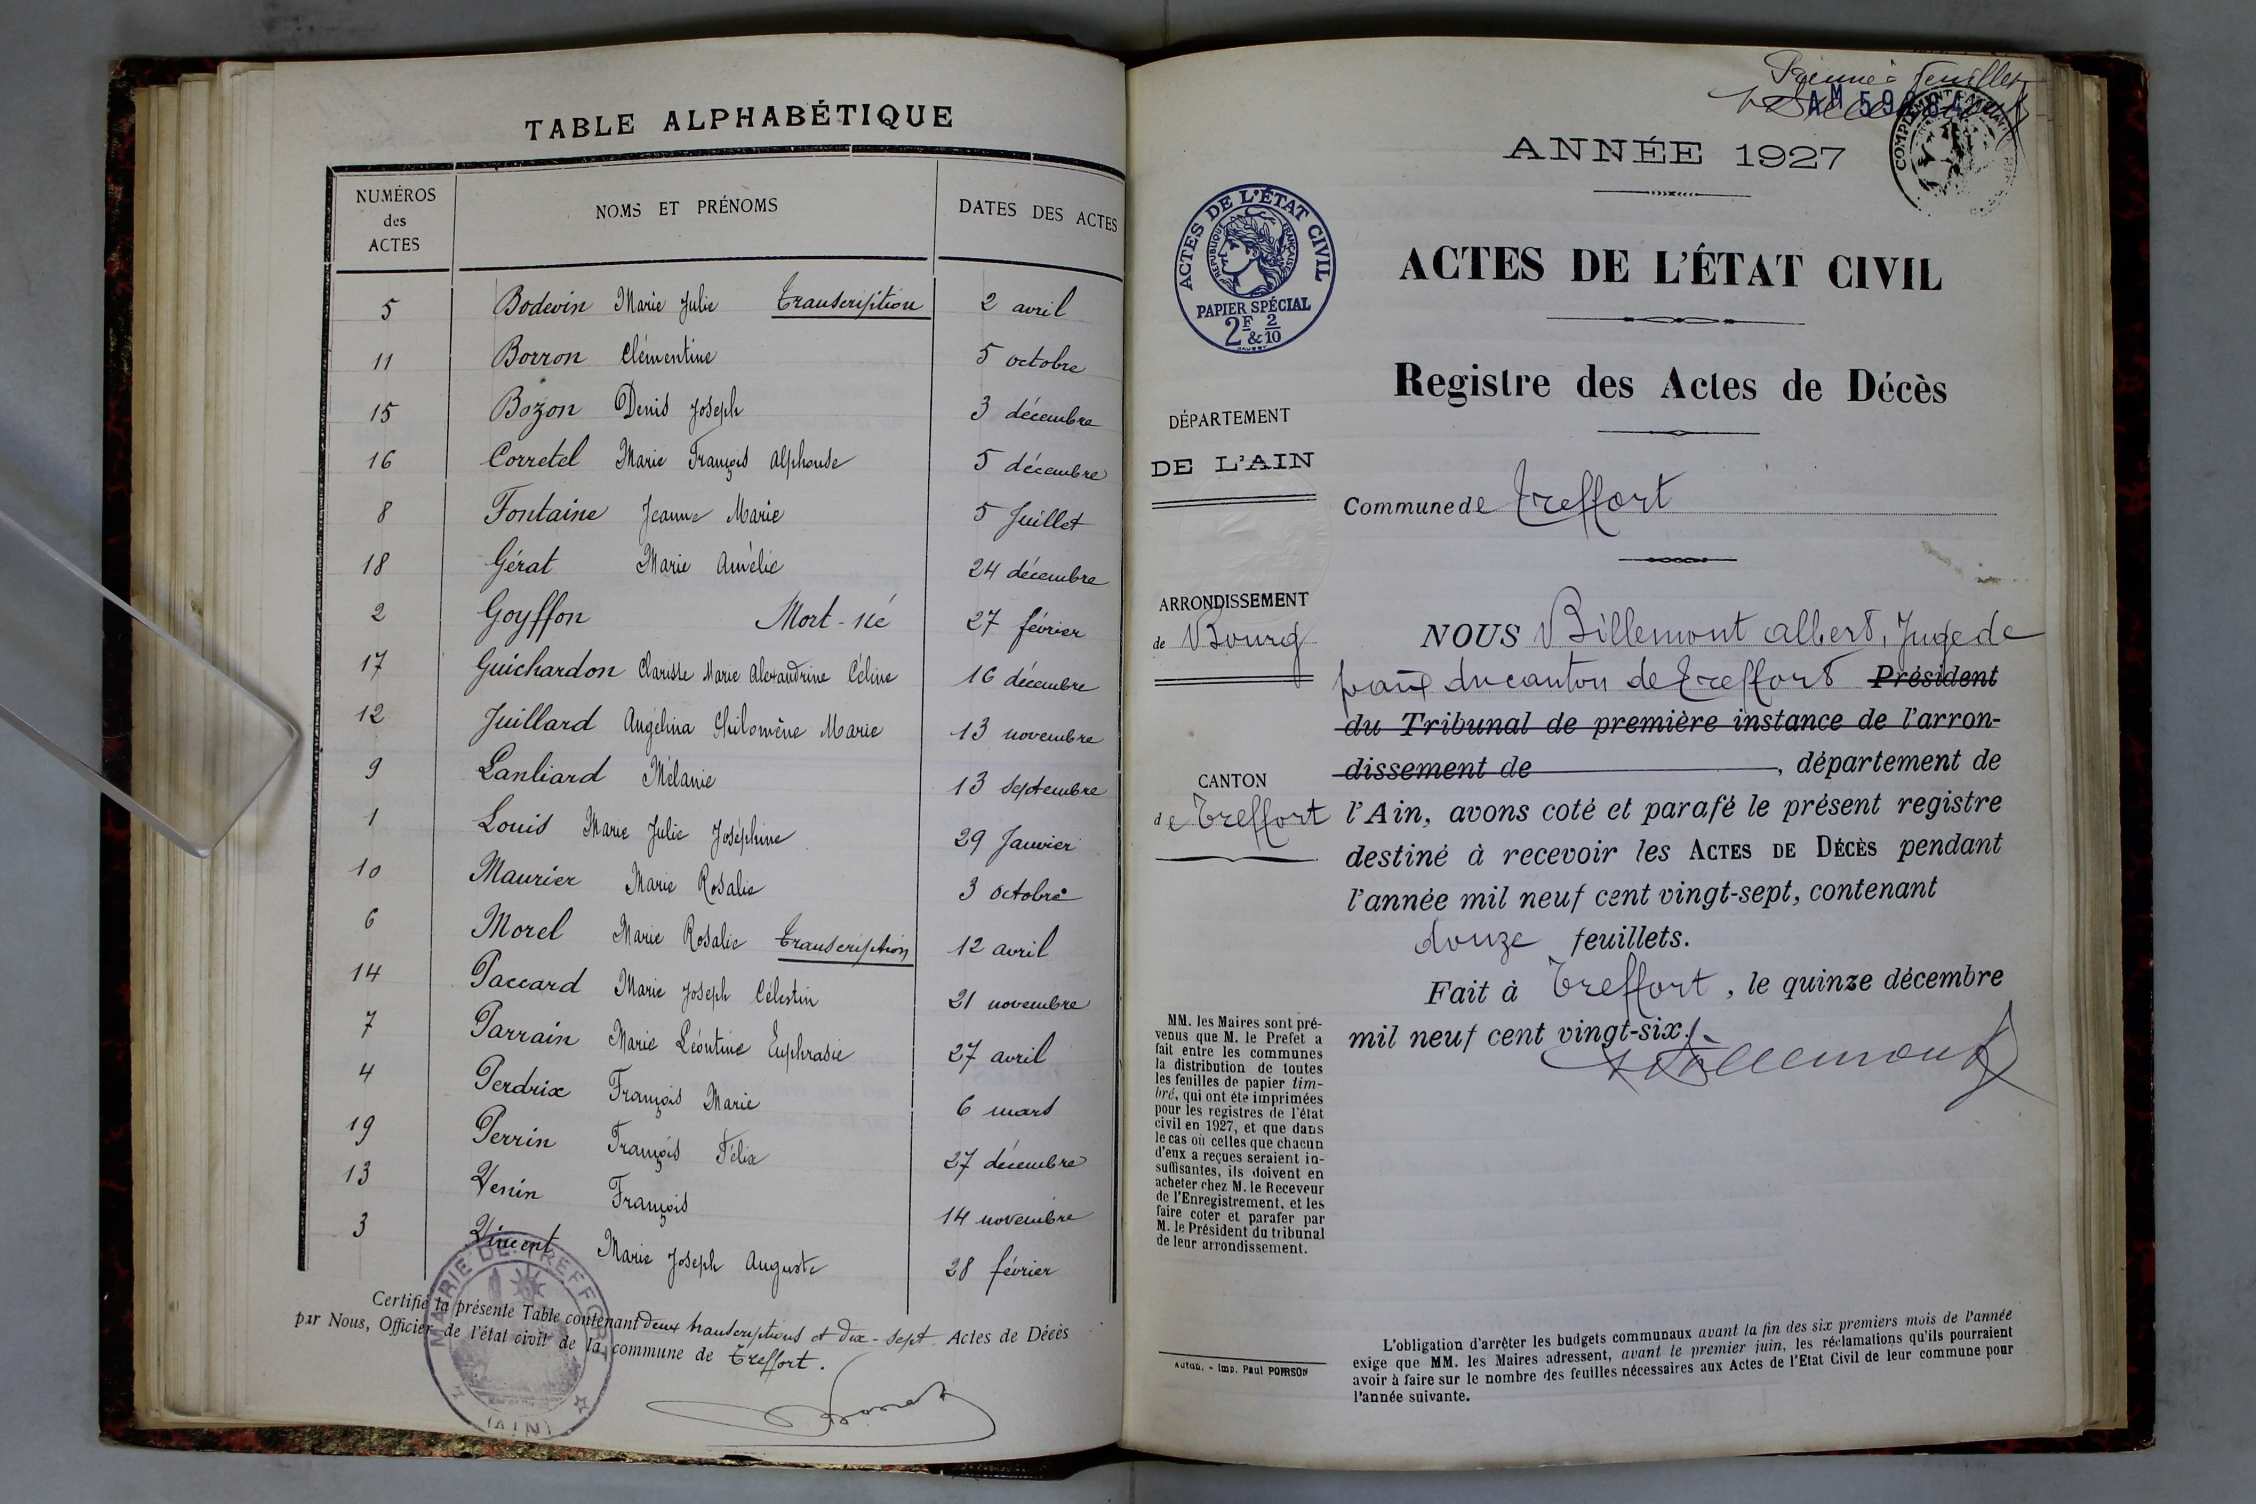 TABLE ALPHABÉTIQUE
NUMÉROS des ACTES NOMS ET PRÉNOMS DATES DES ACTES
5 Bodevin Marie Julie Transcription 2 avril
11 Borron Clémentine 5 octobre
15 Bozon Denis Joseph 3 décembre
16 Corretel Marie François Alphonse 5 décembre
8 Fontaine Jeanne Marie 5 Juillet
18 Gérat Marie Amélie 24 décembre
2 Goyffon Mort-né 27 février
17 Guichardon Clarisse Marie Alexandrine Céline 16 décembre
12 Juillard Angélina Philomène Marie 13 novembre
9 Lanliard Mélanie 13 septembre
1 Louis Marie Julie Joséphine 29 Janvier
10 Maurier Marie Rosalie 3 octobre
6 Morel Marie Rosalie Transcription 12 avril
14 Paccard Marie Joseph Célestin 21 novembre
7 Parrain Marie Léontine Euphrasie 27 avril
4 Perdrix François Marie 6 mars
19 Perrin François Félix 27 décembre
13 Venin François 14 novembre
3 Vincent Marie Joseph Auguste 28 février
Certifié la présente Table contenant deux transcriptions et dix-sept Actes de Décès
par Nous, Officier de l'état civil de la commune de Treffort.
MAIRIE DE TREFFORT
(AIN)
Premier feuillet
ANNÉE 1927
ACTES DE L'ÉTAT CIVIL
RÉPUBLIQUE FRANÇAISE
PAPIER SPÉCIAL
2F & 2/10
ACTES DE L'ÉTAT CIVIL
Registre des Actes de Décès
DÉPARTEMENT
DE L'AIN
Commune de Treffort
ARRONDISSEMENT
de Bourg
CANTON
de Treffort
NOUS Billemont Albert, Juge de
paix du canton de Treffort Président
du Tribunal de première instance de l'arron-
dissement de , département de
l'Ain, avons coté et parafé le présent registre
destiné à recevoir les ACTES DE DÉCÈS pendant
l'année mil neuf cent vingt-sept, contenant
douze feuillets.
Fait à Treffort, le quinze décembre
mil neuf cent vingt-six.
Billemont
MM. les Maires sont pré-
venus que M. le Prefet a
fait entre les communes
la distribution de toutes
les feuilles de papier tim-
bré, qui ont été imprimées
pour les registres de l'état
civil en 1927, et que dans
le cas où celles que chacun
d'eux a reçues seraient in-
suffisantes, ils doivent en
acheter chez M. le Receveur
de l'Enregistrement, et les
faire coter et parafer par
M. le Président du tribunal
de leur arrondissement.
Imp. Paul POIRSON
L'obligation d'arrêter les budgets communaux avant la fin des six premiers mois de l'année
exige que MM. les Maires adressent, avant le premier juin, les réclamations qu'ils pourraient
avoir à faire sur le nombre des feuilles nécessaires aux Actes de l'Etat Civil de leur commune pour
l'année suivante.